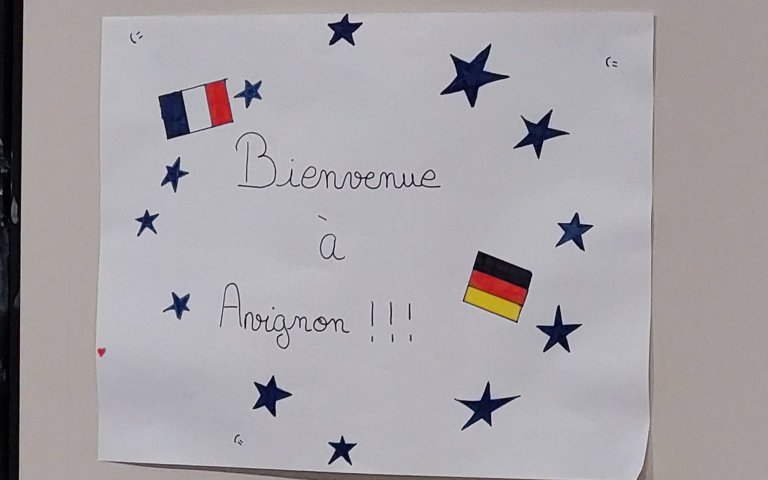 Bienvenue
à
Avignon !!!